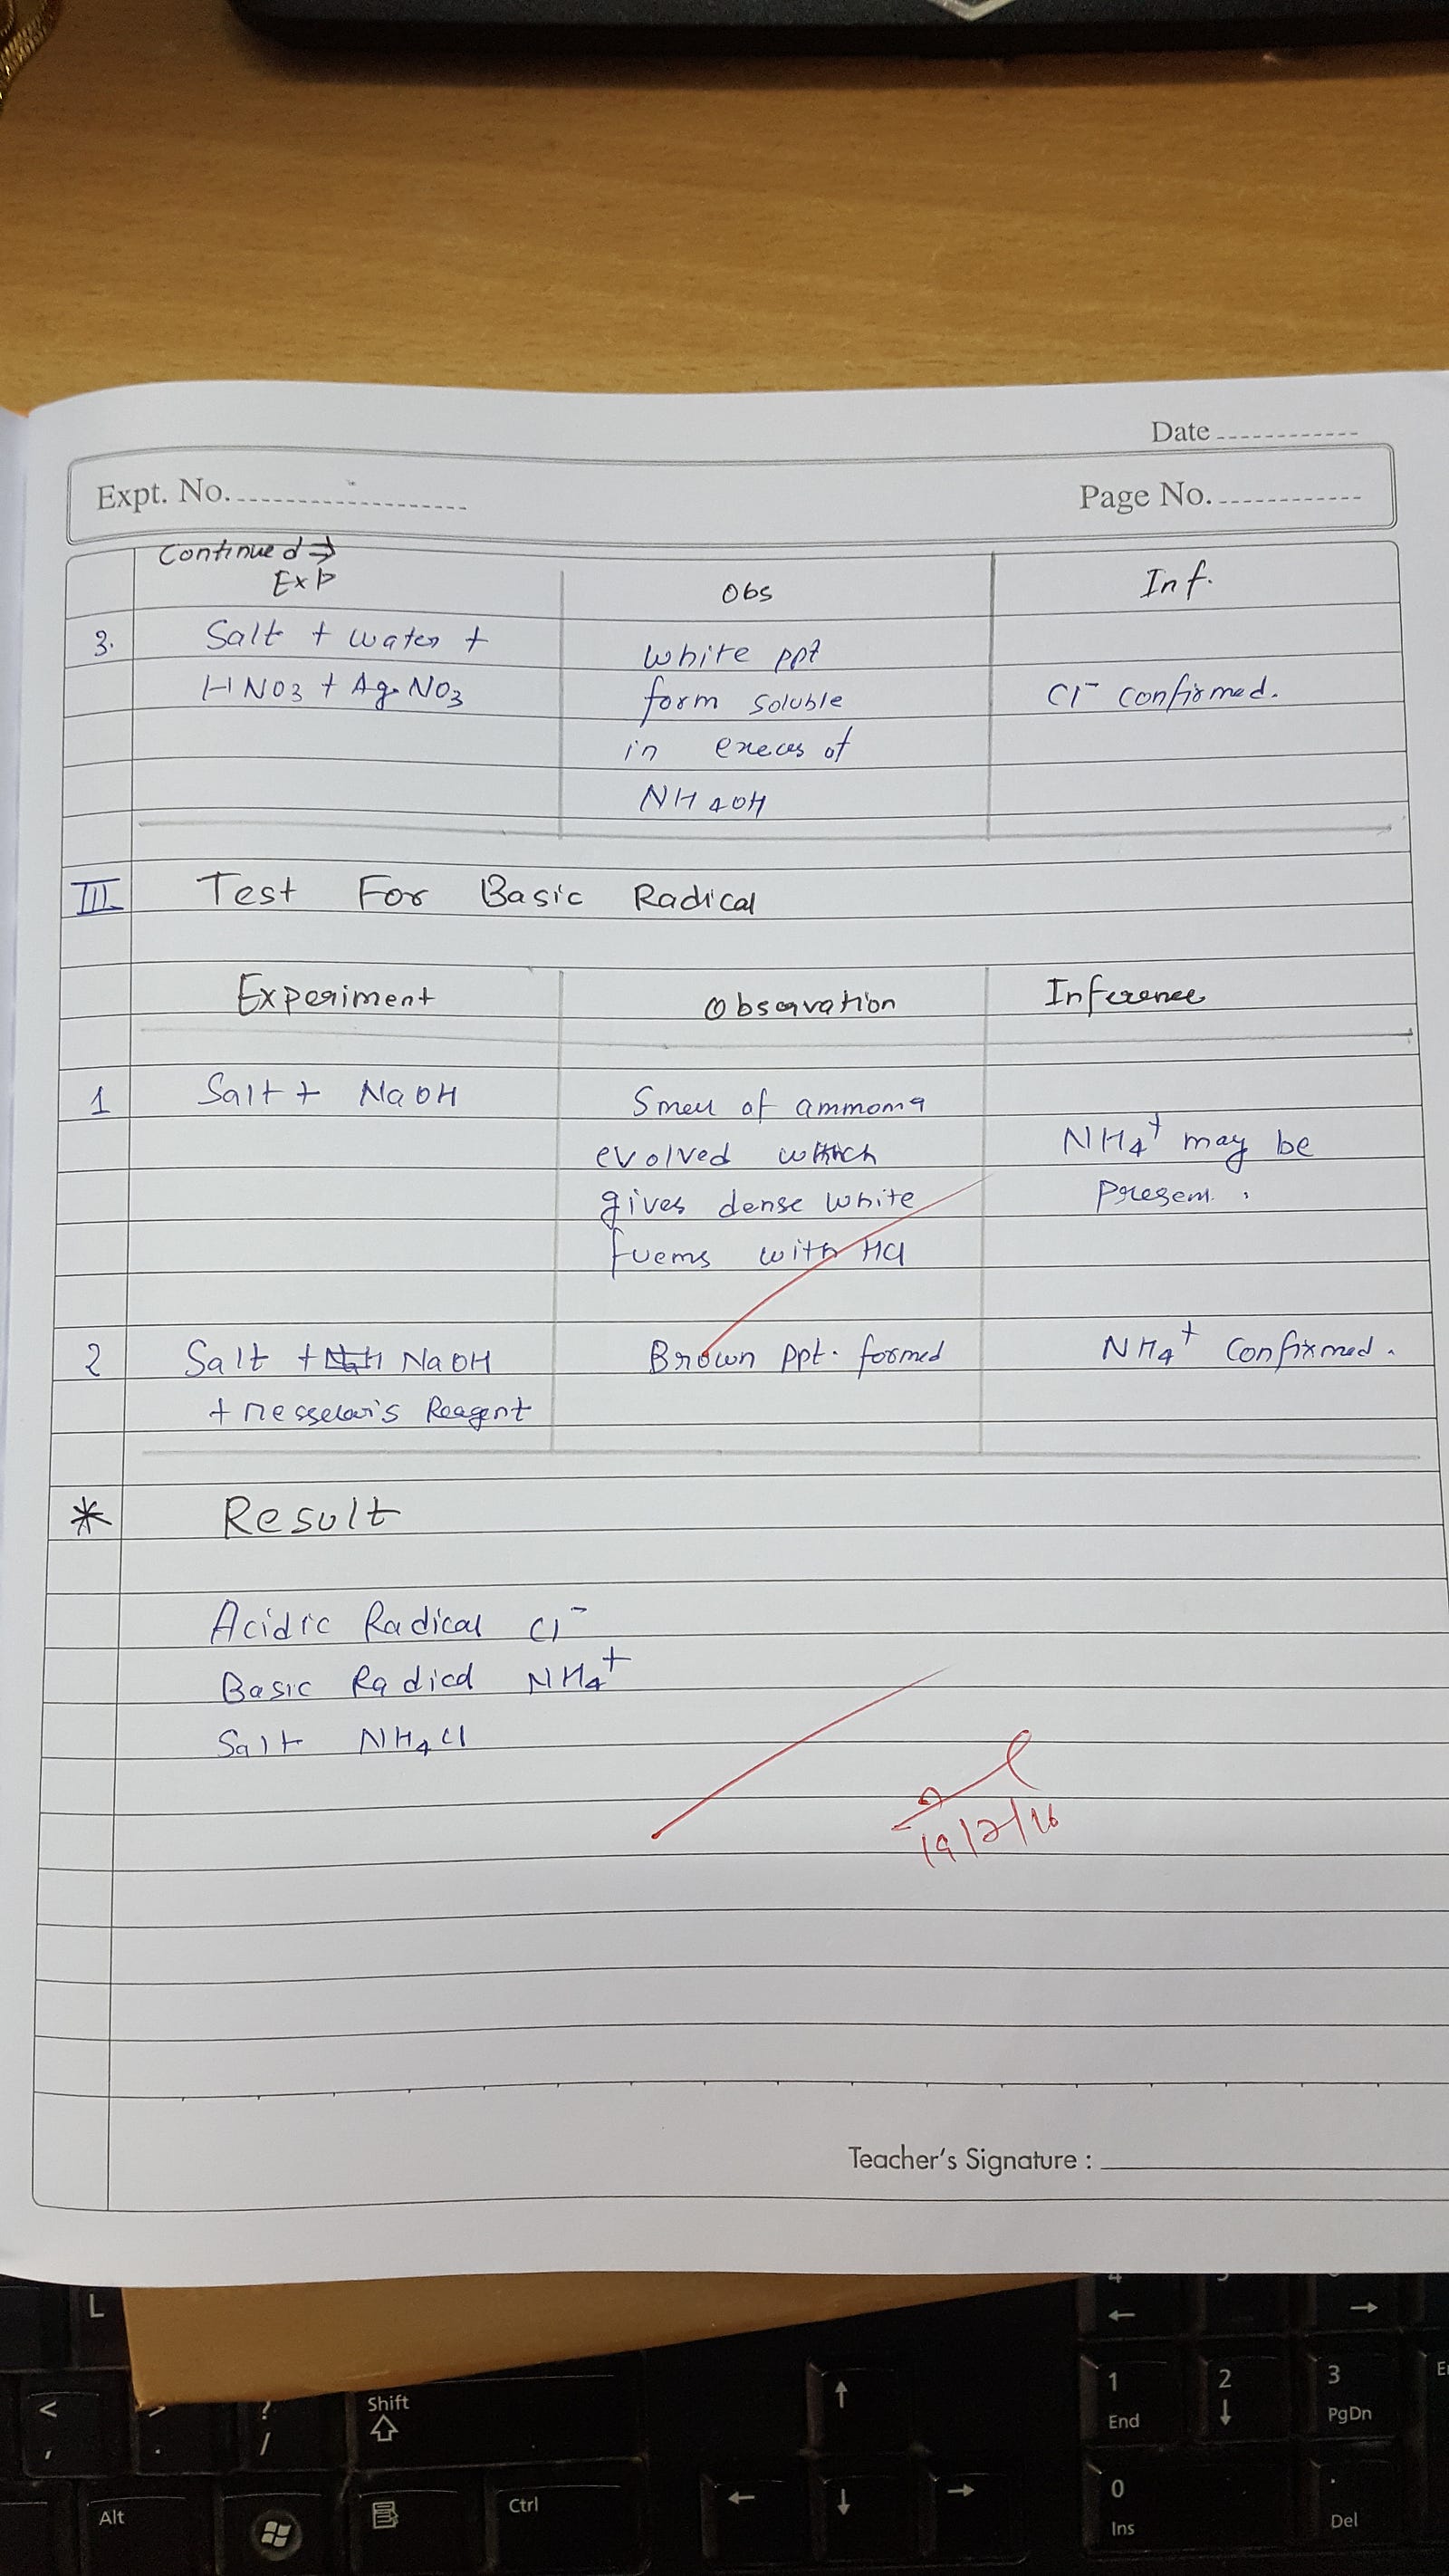 Date
Expt. No.
Page No.
Continued →
Exp
Obs
Inf.
3.
Salt + water +
HNO3 + AgNO3
white ppt
form soluble
in execes of
NH4OH
Cl⁻ confirmed.
III Test For Basic Radical
Experiment
Observation
Inference
1
Salt + NaOH
Smell of ammonia
evolved which
gives dense white
fuems with HCl
NH4⁺ may be
Present.
2
Salt + NaOH
+ nesseler's Reagent
Brown ppt. formed
NH4⁺ Confirmed.
* Result
Acidic Radical Cl⁻
Basic Radical NH4⁺
Salt NH4Cl
19/2/16
Teacher's Signature :
L
4
←
→
< ,
> .
? /
Shift
↑
1
End
2
↓
3
PgDn
Alt
Ctrl
←
↓
→
0
Ins
.
Del